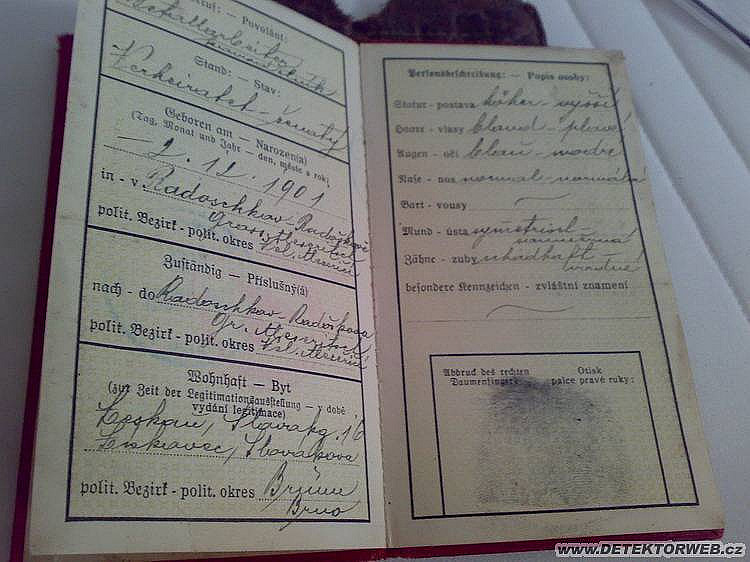 Beruf: — Povolání:
Stand: — Stav:
Verheiratet - ženatý
Geboren am — Narozen(a)
(Tag, Monat und Jahr — den, měsíc a rok)
— 2. 12. 1901
in - v Radoschkov - Radoškově
Gross Meseritsch
polit. Bezirk - polit. okres Vel. Meziříčí
Zuständig — Příslušný(á)
nach - do Radoschkov - Radoškova
Gr. Meseritsch
polit. Bezirk - polit. okres Vel. Meziříčí
Wohnhaft — Byt
(zur Zeit der Legitimationsausstellung — v době
vydání legitimace)
Leskau, 16
Lískovec, Slovákova
polit. Bezirk - polit. okres Brünn
Brno
Personsbeschreibung: — Popis osoby:
Statur - postava höher - vyšší
Haare - vlasy blond - plavé
Augen - oči blau - modré
Nase - nos normal - normální
Bart - vousy
Mund - ústa
souměrná
Zähne - zuby schadhaft -
vadné
besondere Kennzeichen - zvláštní znamení
Abdruck des rechten Otisk
Daumenfingers palce pravé ruky:
www.DETEKTORWEB.cz